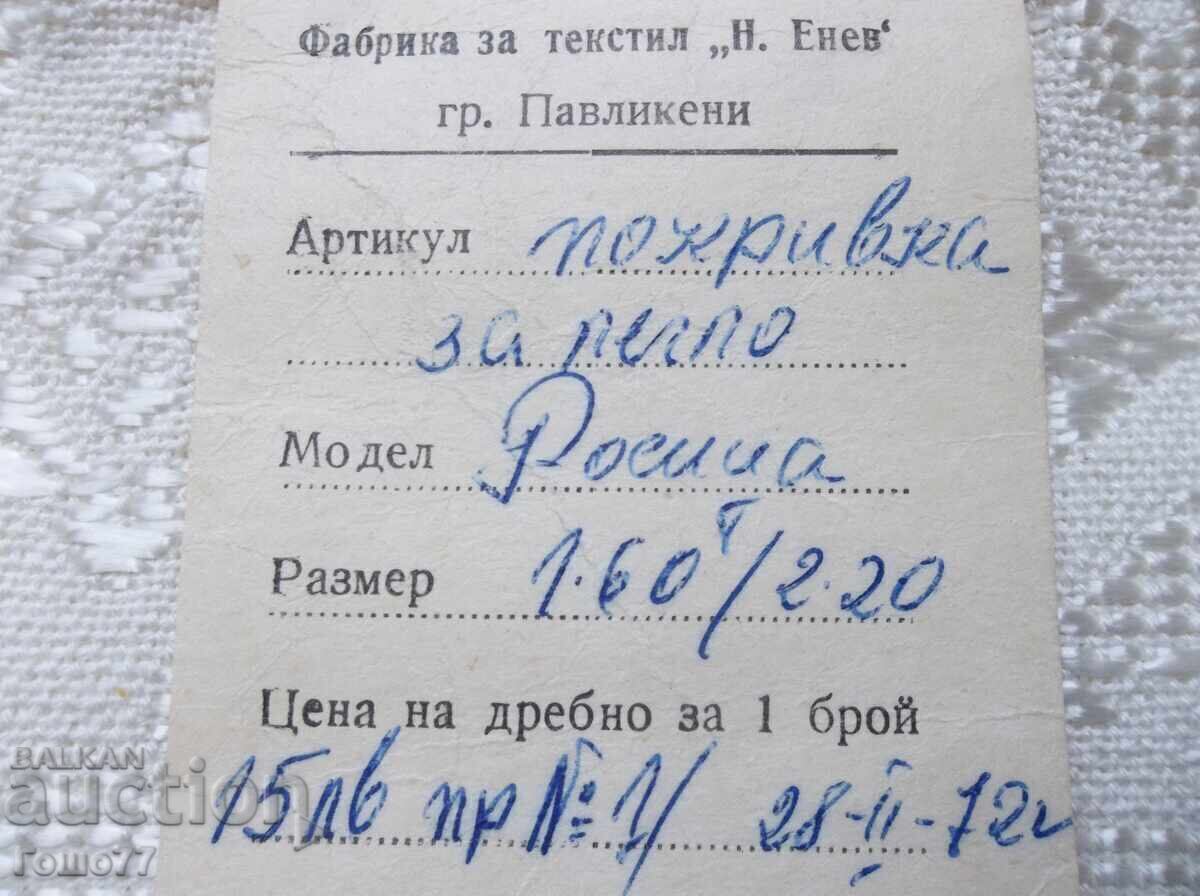 Фабрика за текстил „Н. Енев“
гр. Павликени
Артикул покривка
за легло
Модел Росица
Размер 1.60/2.20
Цена на дребно за 1 брой
15 лв пр № 1/ 28-II-72г
BALKAN
auction
гошо77